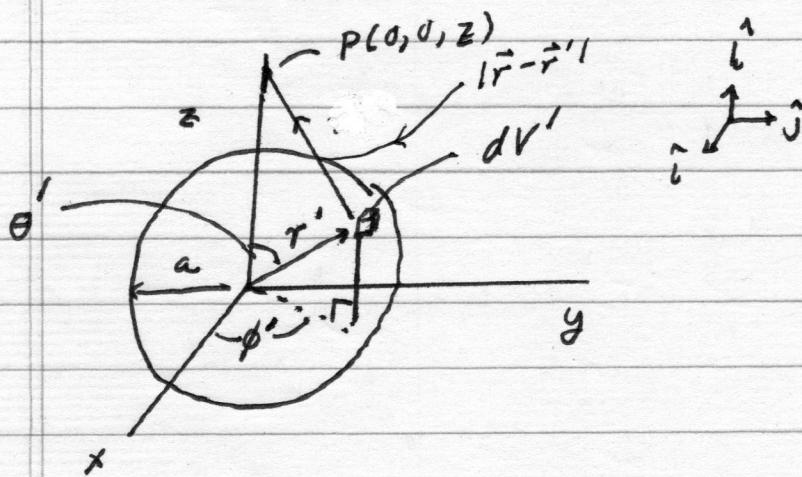 P(0,0,z)
|r⃗-r⃗'|
z
dV'
l̂
ĵ
l̂
θ'
r'
a
φ'
y
x